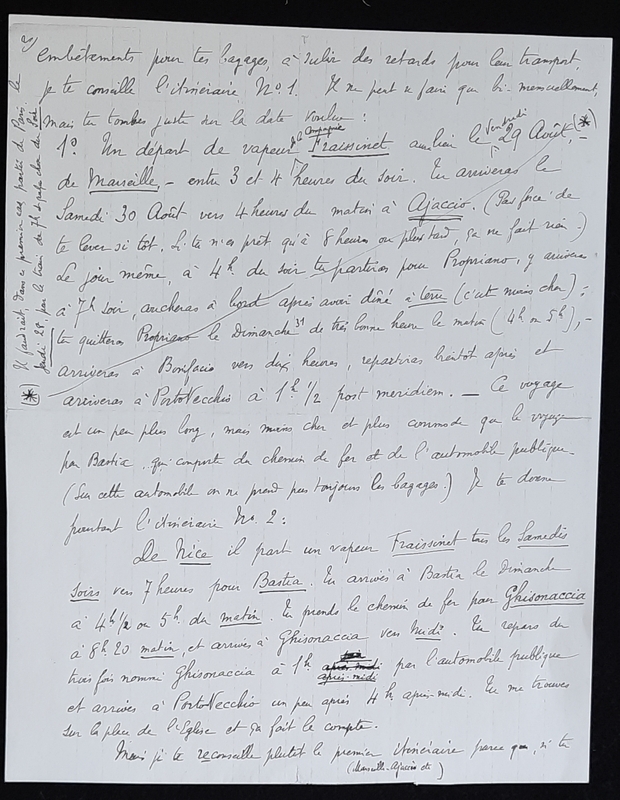 2)
embêtements pour tes bagages, à subir des retards pour leur transport,
je te conseille l'itinéraire No 1. Il ne peut se faire que bi-mensuellement,
mais tu tombes juste sur la date voulue :
1o Un départ de vapeur de la Compagnie Fraissinet aura lieu le vendredi 29 Août, (*) –
de Marseille, – entre 3 et 4 heures du soir. Tu arriveras le
Samedi 30 Août vers 4 heures du matin à Ajaccio. (Pas forcé de
te lever si tôt. Si tu n'es prêt qu'à 8 heures ou plus tard, ça ne fait rien.)
Le jour même, à 4h du soir tu partiras pour Propriano, y arriveras
à 7h soir, coucheras à bord après avoir dîné à terre (c'est moins cher) ;
tu quitteras Propriano le Dimanche 31 de très bonne heure le matin (4h ou 5h), –
arriveras à Bonifacio vers dix heures, repartiras bientôt après et
arriveras à PortoVecchio à 1h 1/2 post meridiem. — Ce voyage
est un peu plus long, mais moins cher et plus commode que le voyage
par Bastia, qui comporte du chemin de fer et de l'automobile publique.
(Sur cette automobile on ne prend pas toujours les bagages.) Je te donne
pourtant l'itinéraire No. 2 :
De Nice il part un vapeur Fraissinet tous les Samedis
soirs vers 7 heures pour Bastia. Tu arrives à Bastia le Dimanche
à 4h 1/2 ou 5h. du matin. Tu prends le chemin de fer pour Ghisonaccia
à 8h 20 matin, et arrives à Ghisonaccia vers Midi. Tu repars du
trois fois nommé Ghisonaccia à 1h après-midi par l'automobile publique
et arrives à PortoVecchio un peu après 4h après-midi. Tu me trouves
sur la place de l'Eglise et ça fait le compte.
Mais je te reconseille plutôt le premier itinéraire parce que, si tu
(Marseille-Ajaccio etc)
(*) Il faudrait, dans ce premier cas, partir de Paris, le
Jeudi 28, par le train de 7h du soir